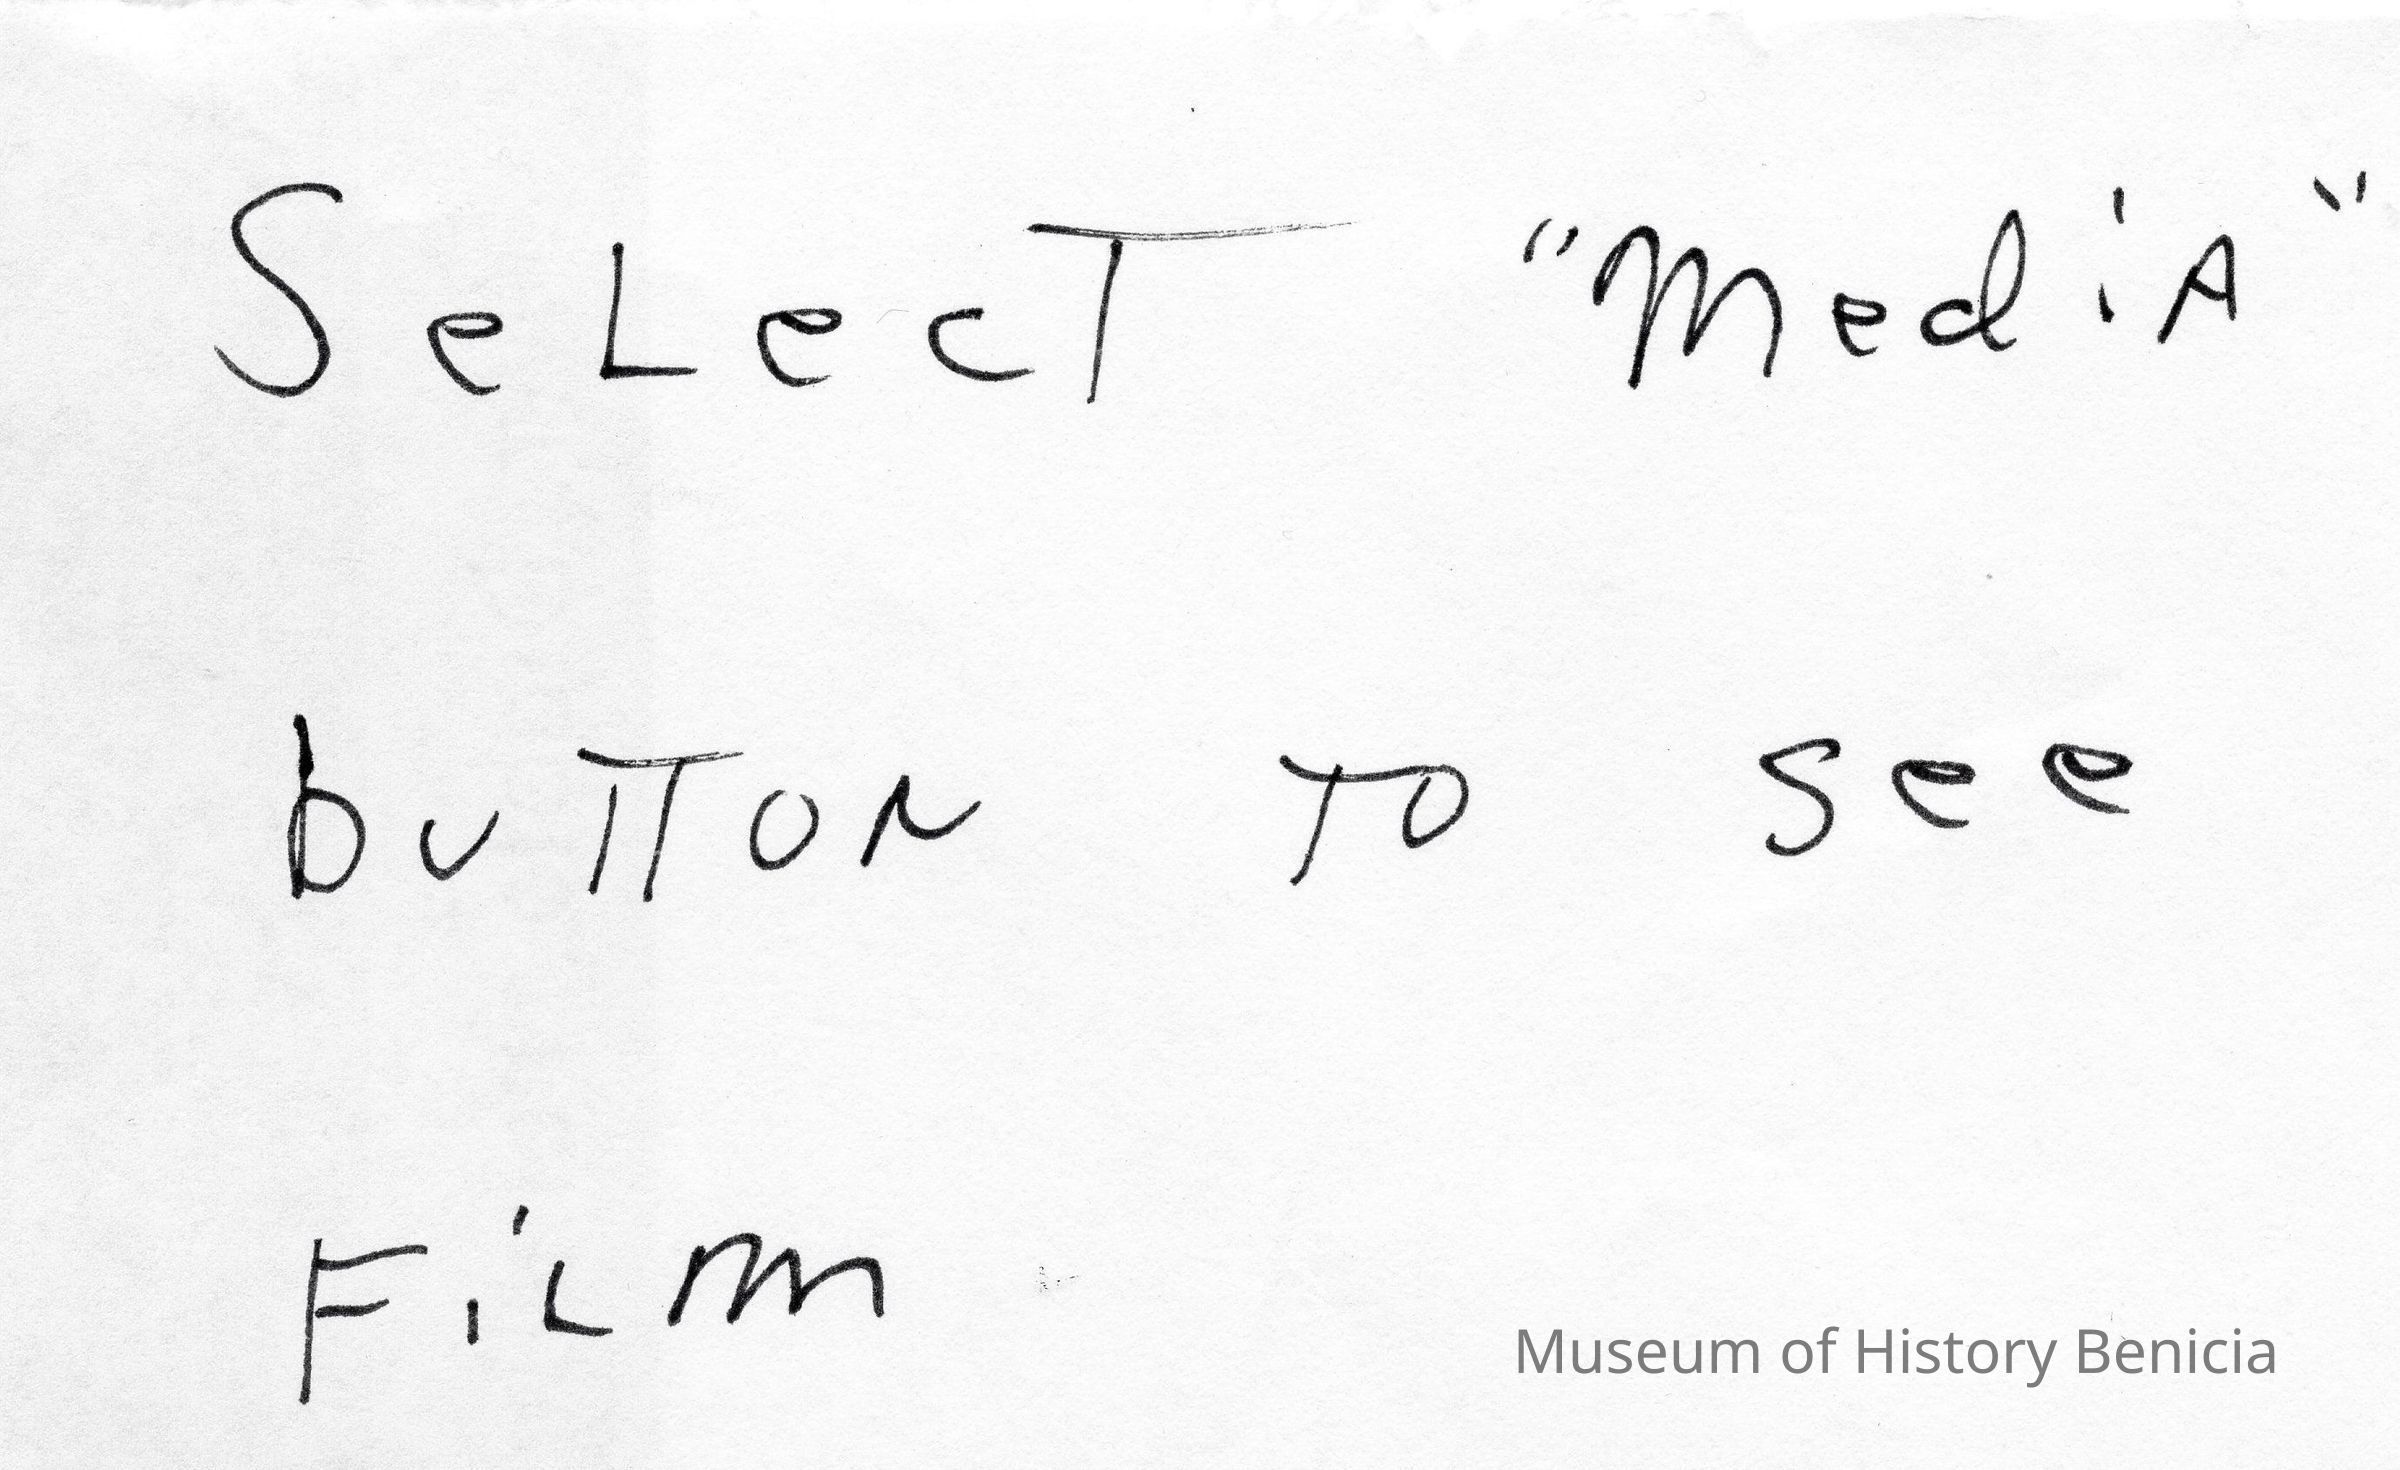 SeLecT "MediA"
buTTON TO See
FiLm
Museum of History Benicia